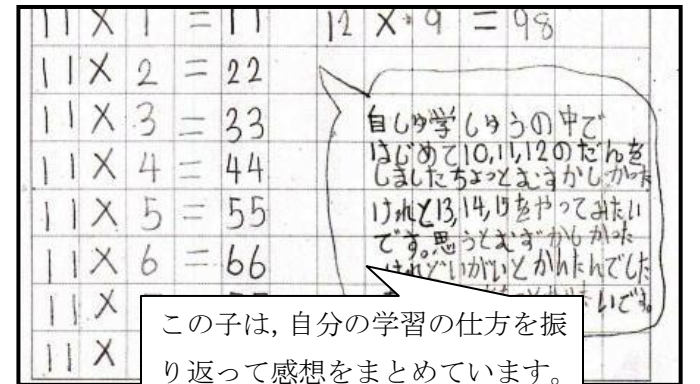 11 × 1 = 11
12 × 9 = 98
11 × 2 = 22
11 × 3 = 33
11 × 4 = 44
11 × 5 = 55
11 × 6 = 66
11 ×
11 ×
自しゅ学しゅうの中で
はじめて10,11,12のだんを
しましたちょっとむずかしかった
けれど13,14,15をやってみたい
です。思うとむずかしかった
けれどいがいとかんたんでした
いです。
この子は，自分の学習の仕方を振
り返って感想をまとめています。